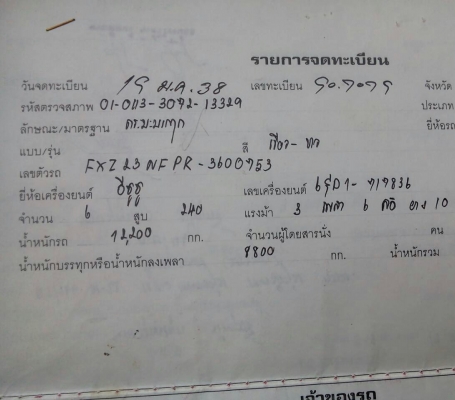 รายการจดทะเบียน
วันจดทะเบียน 19 ม.ค. 38 เลขทะเบียน จังหวัด
รหัสตรวจสภาพ ประเภท
ลักษณะ/มาตรฐาน ยี่ห้อรถ
แบบ/รุ่น สี
เลขตัวรถ FXZ23NFPR-3600953
ยี่ห้อเครื่องยนต์ อีซูซุ เลขเครื่องยนต์
จำนวน 6 สูบ 240 แรงม้า 3 เพลา 6 ล้อ ยาง 10
น้ำหนักรถ 12,200 กก. จำนวนผู้โดยสารนั่ง คน
น้ำหนักบรรทุกหรือน้ำหนักลงเพลา 8800 กก. น้ำหนักรวม
เจ้าของรถ